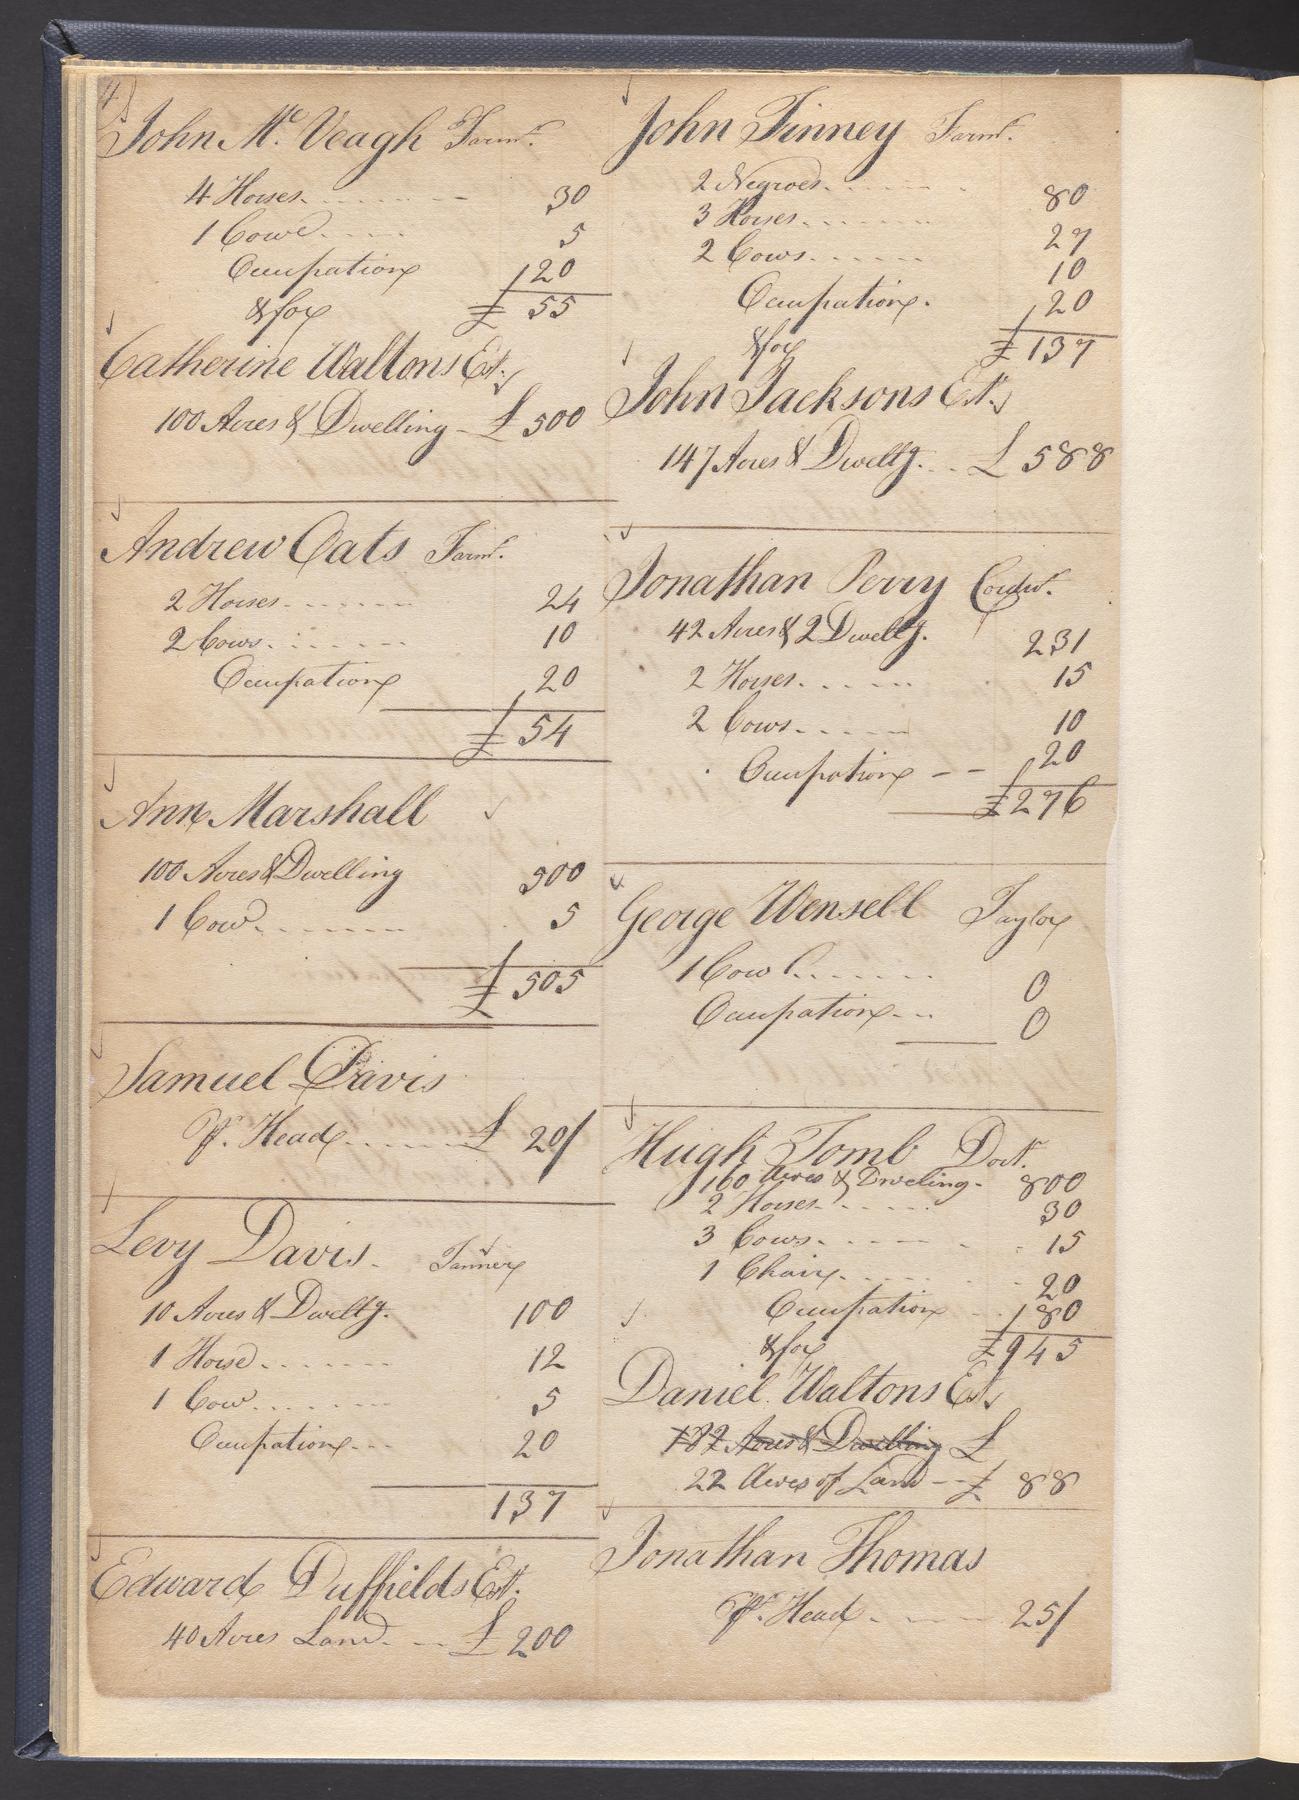 4)
John Mc. Veagh Farmr.
4 Horses 30
1 Cow 5
Occupation 20
&for £ 55
Catherine Waltons Est.
100 Acres & Dwelling £ 500
Andrew Oats Farmr.
2 Horses 24
2 Cows 10
Occupation 20
£ 54
Ann Marshall
100 Acres & Dwelling 500
1 Cow 5
£ 505
Samuel Davis
Pr. Head £ 20/
Levy Davis. Tanner
10 Acres & Dwellg. 100
1 Horse 12
1 Cow 5
Occupation 20
137
Edward Duffields Est.
40 Acres Land £ 200
John Finney Farmr.
2 Negroes 80
3 Horses 27
2 Cows 10
Occupation. 20
&for £ 137
John Jacksons Est.
147 Acres & Dwellg. £ 588
Jonathan Perry Cordwr.
42 Acres & 2 Dwellg. 231
2 Horses 15
2 Cows 10
Occupation 20
£ 276
George Wensell Taylor
1 Cow 0
Occupation 0
Hugh Tomb Doctr.
160 Acres & Dweling 800
2 Horses 30
3 Cows 15
1 Chair 20
Occupation 80
&for £ 945
Daniel Waltons Est.
122 Acres & Dwelling £
22 Acres of Land £ 88
Jonathan Thomas
Pr. Head 25/